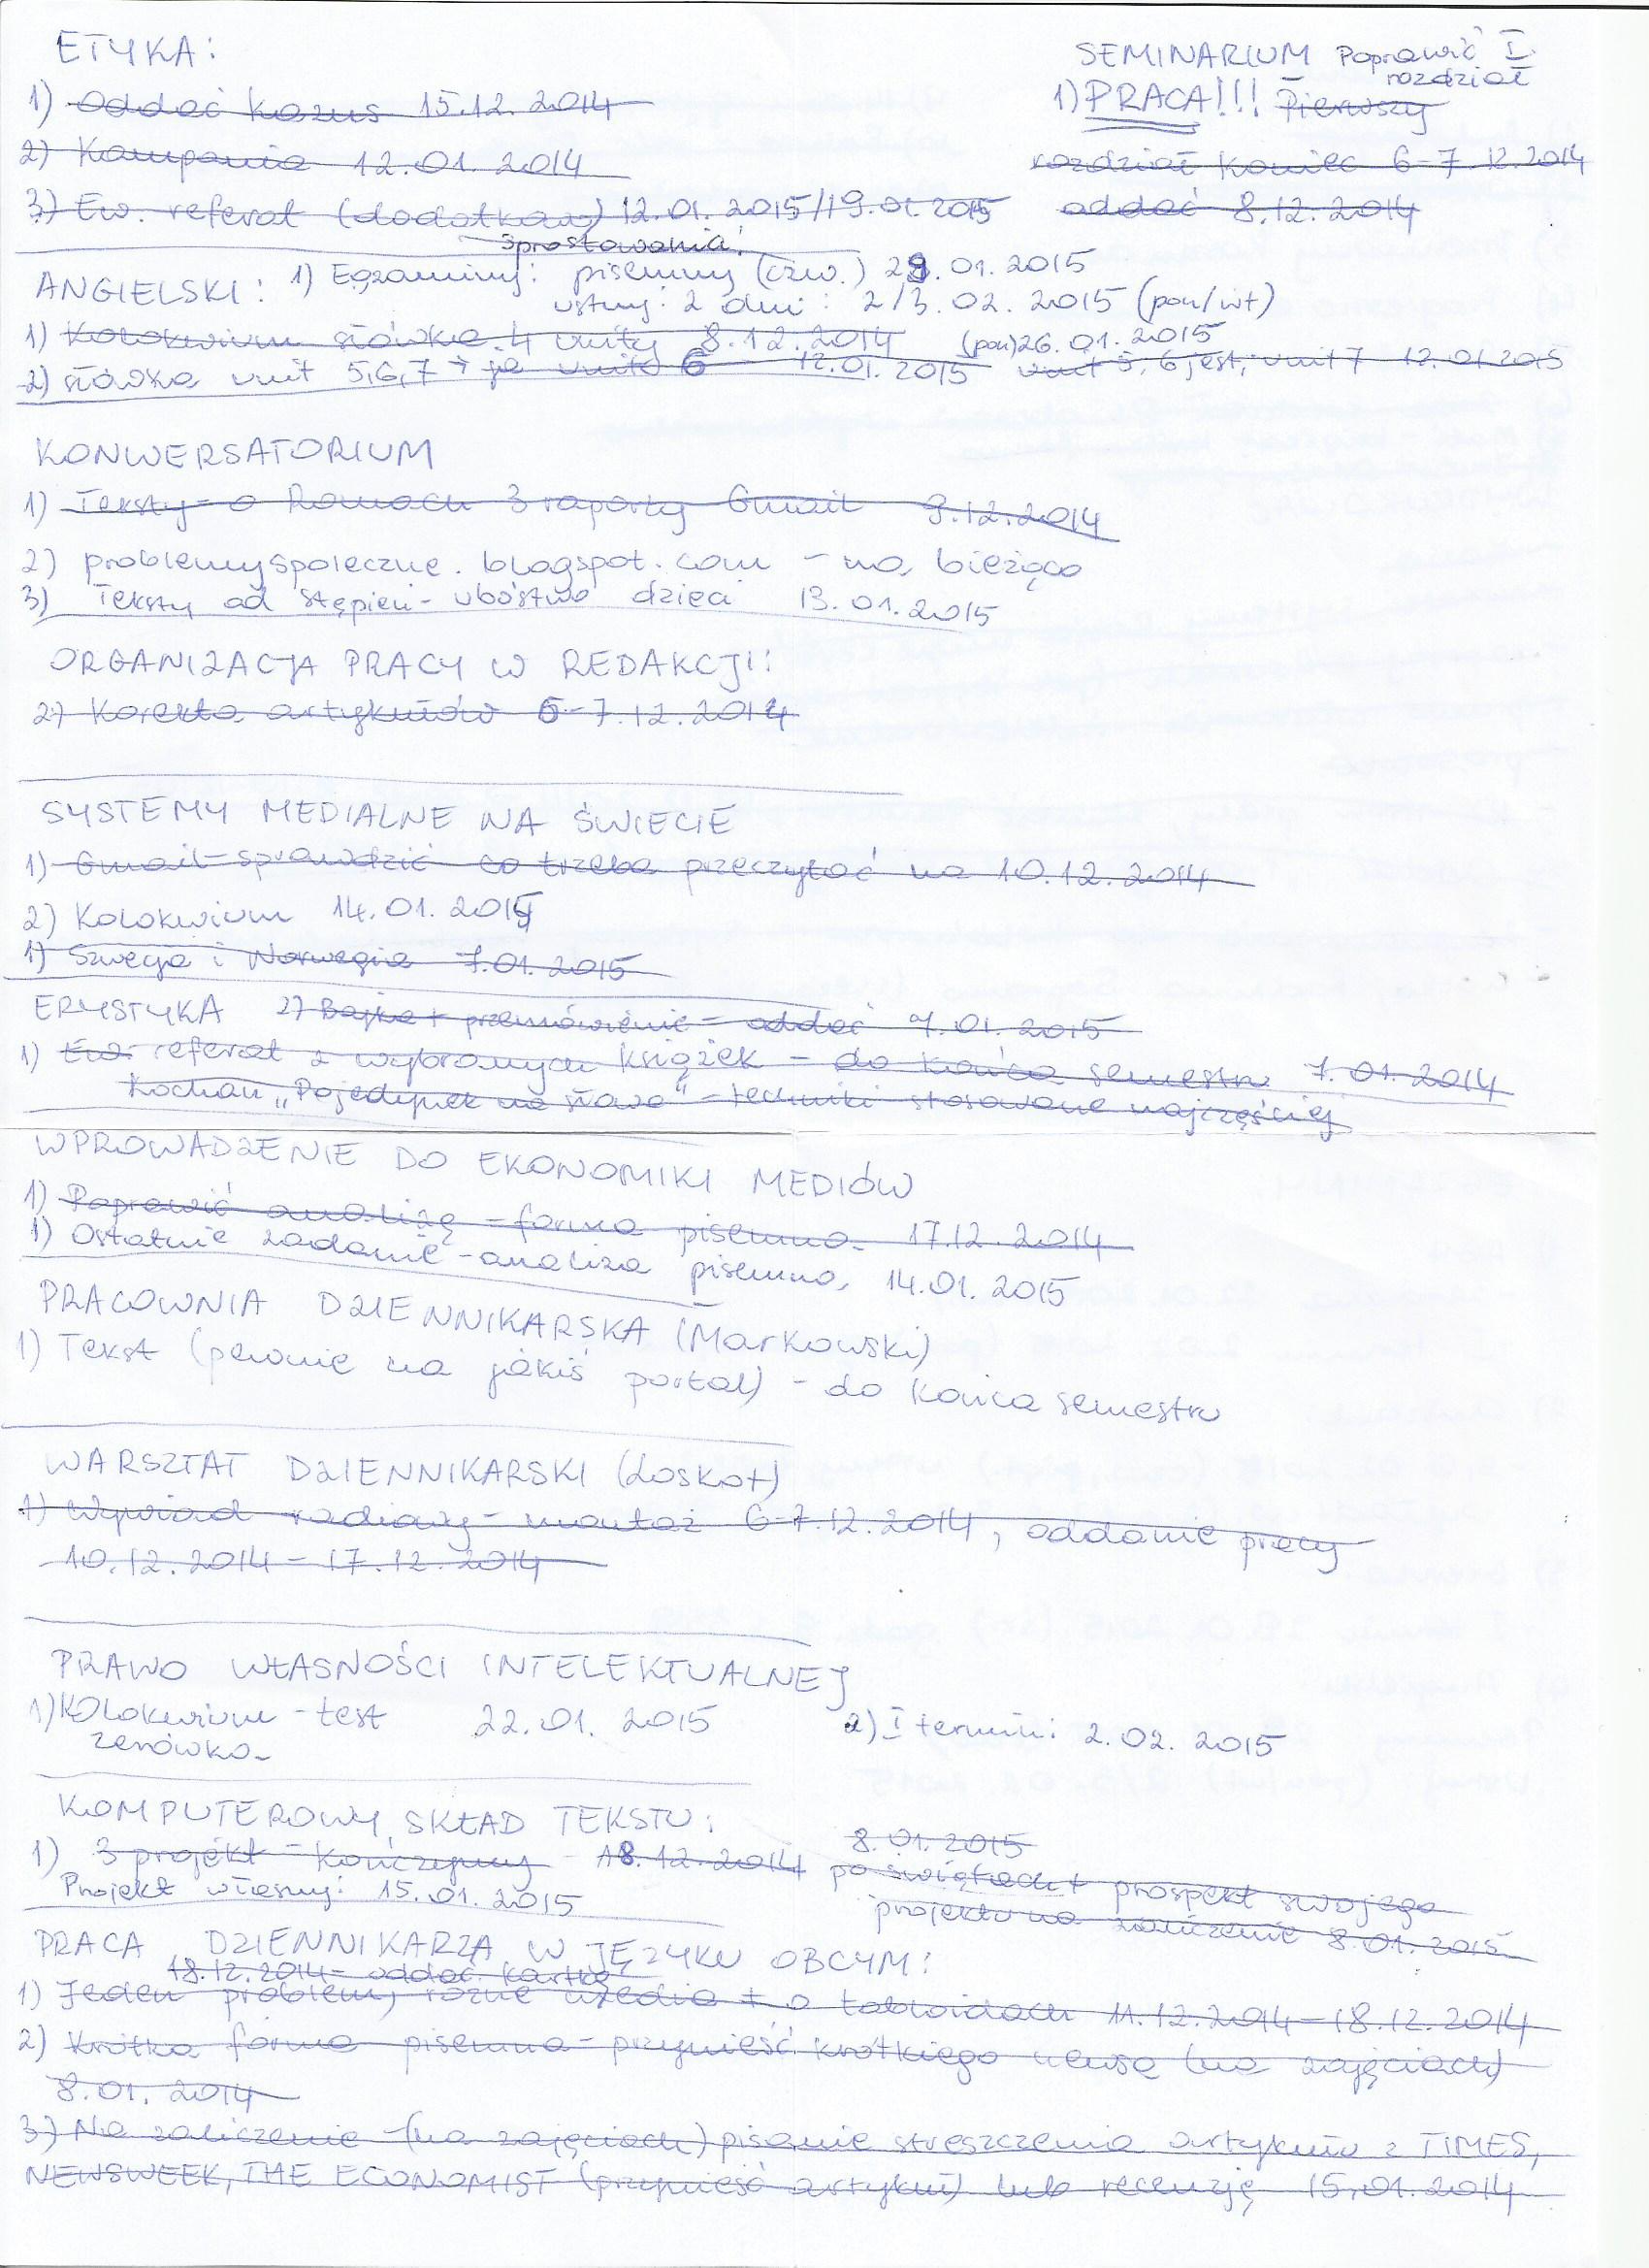 ETYKA:
1) Oddać kazus 15.12.2014
2) Kampania 12.01.2014
3) Ew. referat (dodatkowy) 12.01.2015/19.01.2015
sprostowania!
SEMINARIUM Poprawić I
rozdział
1) PRACA!!! Pierwszy
rozdział koniec 6-7.12.2014
oddać 8.12.2014
ANGIELSKI: 1) Egzaminy: pisemny (czw.) 29.01.2015
ustny: 2 dni: 2/3.02.2015 (pon/wt)
1) Kolokwium słówka 4 unity 8.12.2014 (pon) 26.01.2015
2) słówka unit 5,6,7 → 6 12.01.2015 unit 5, 6 jest, unit 7 12.01.2015
KONWERSATORIUM
1) Teksty - o Romach 3 raporty Gmail 9.12.2014
2) problemyspoleczne.blogspot.com - na bieżąco
3) Teksty od Stępień - ubóstwo dzieci 13.01.2015
ORGANIZACJA PRACY W REDAKCJI:
2) Korekta artykułów 6-7.12.2014
SYSTEMY MEDIALNE NA ŚWIECIE
1) Gmail - sprawdzić co trzeba przeczytać na 10.12.2014
2) Kolokwium 14.01.2015
1) Szwecja i Norwegia 7.01.2015
ERYSTYKA 2) Bajka + przemówienie - oddać 7.01.2015
1) Ew. referat z wybranych książek - do końca semestru 7.01.2014
Kochan „Pojedynek na słowa" - techniki stosowane najczęściej
WPROWADZENIE DO EKONOMIKI MEDIÓW
1) Poprawić analizę - forma pisemna 17.12.2014
1) Ostatnie zadanie - analiza pisemna, 14.01.2015
PRACOWNIA DZIENNIKARSKA (Markowski)
1) Tekst (pewnie na jakiś portal) - do końca semestru
WARSZTAT DZIENNIKARSKI (Łoskot)
1) Wywiad radiowy - montaż 6-7.12.2014, oddanie pracy
10.12.2014 - 17.12.2014
PRAWO WŁASNOŚCI INTELEKTUALNEJ
1) Kolokwium - test 22.01.2015 2) I termin: 2.02.2015
zerówka
KOMPUTEROWY SKŁAD TEKSTU:
1) 3 projekt - kończymy - 18.12.2014
8.01.2015
po świętach + prospekt swojego
projektu na zaliczenie 8.01.2015
Projekt własny: 15.01.2015
PRACA DZIENNIKARZA W JĘZYKU OBCYM:
18.12.2014 - oddać kartkę
1) Jeden problem, różne media + o tabloidach 11.12.2014 - 18.12.2014
2) Krótka forma pisemna - przynieść krótkiego newsa (na zajęciach)
8.01.2014
3) Na zaliczenie - (na zajęciach) pisanie streszczenia artykułu z TIMES,
NEWSWEEK, THE ECONOMIST (przynieść artykuł) lub recenzję 15.01.2014